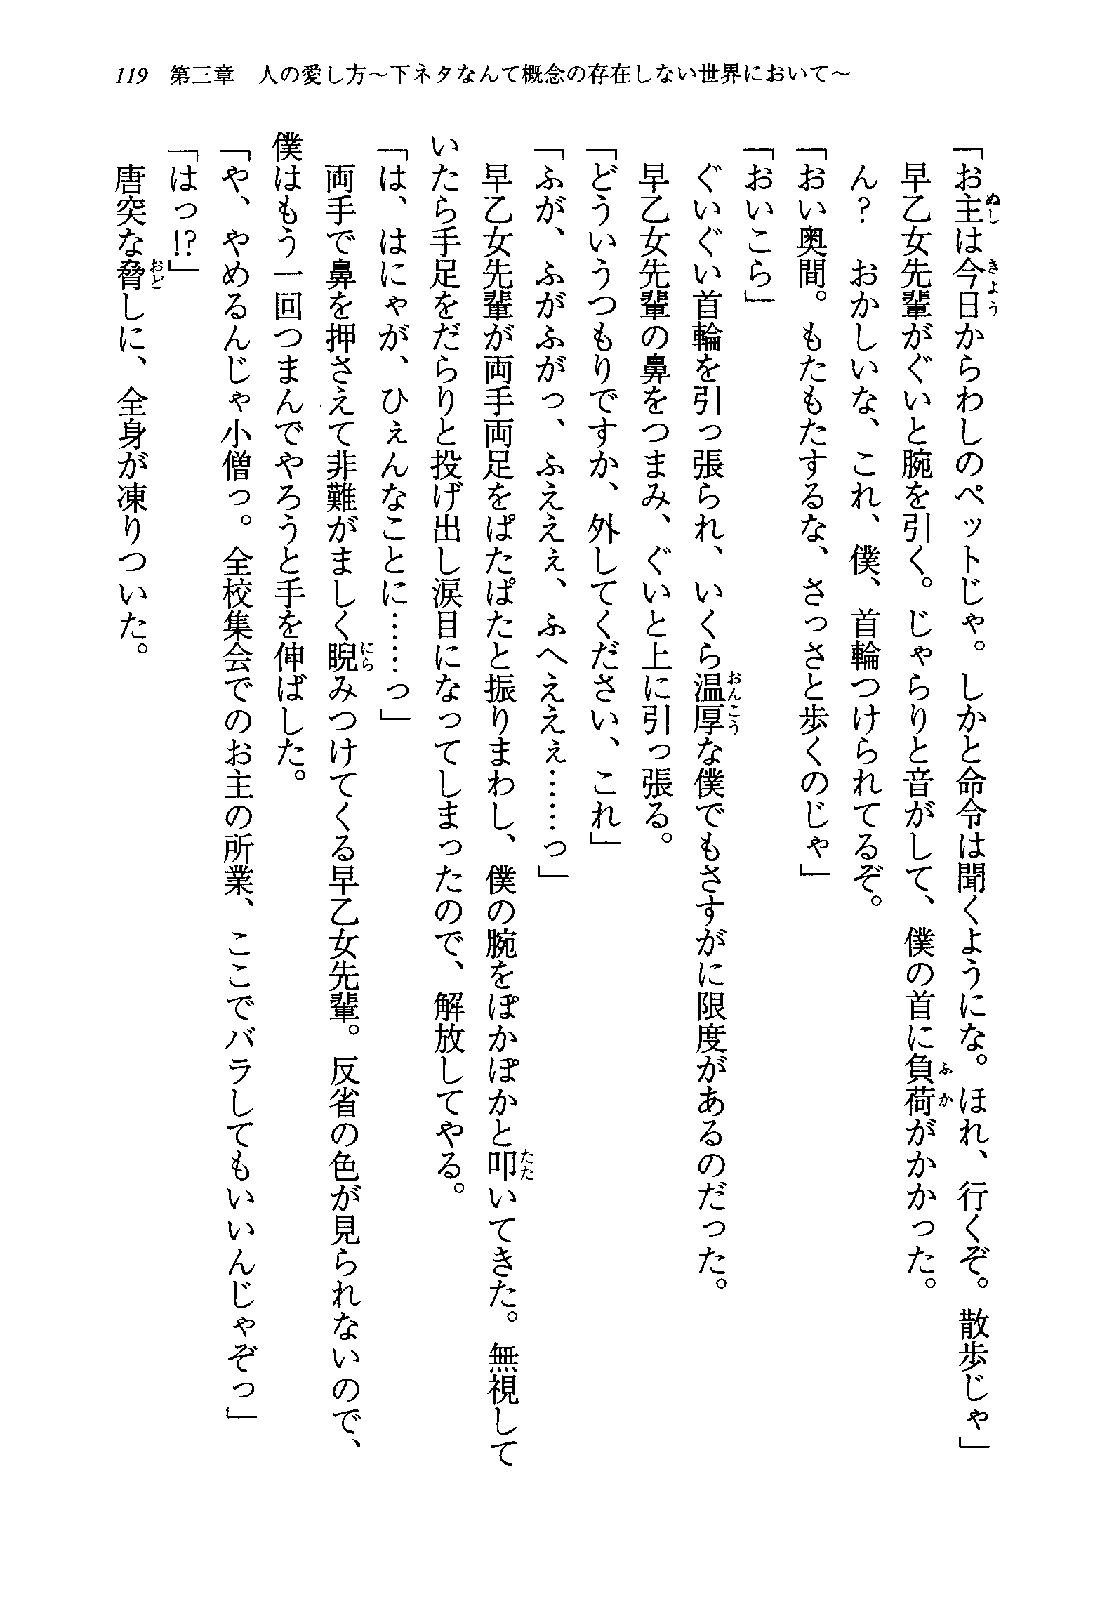 119 第三章　人の愛し方～下ネタなんて概念の存在しない世界において～
「お主は今日からわしのペットじゃ。しかと命令は聞くようにな。ほれ、行くぞ。散歩じゃ」
早乙女先輩がぐいと腕を引く。じゃらりと音がして、僕の首に負荷がかかった。
ん？　おかしいな、これ、僕、首輪つけられてるぞ。
「おい奥間。もたもたするな、さっさと歩くのじゃ」
「おいこら」
ぐいぐい首輪を引っ張られ、いくら温厚な僕でもさすがに限度があるのだった。
早乙女先輩の鼻をつまみ、ぐいと上に引っ張る。
「どういうつもりですか、外してください、これ」
「ふが、ふがふがっ、ふええぇ、ふへええぇ……っ」
早乙女先輩が両手両足をぱたぱたと振りまわし、僕の腕をぽかぽかと叩いてきた。無視して
いたら手足をだらりと投げ出し涙目になってしまったので、解放してやる。
「は、はにゃが、ひぇんなことに……っ」
両手で鼻を押さえて非難がましく睨みつけてくる早乙女先輩。反省の色が見られないので、
僕はもう一回つまんでやろうと手を伸ばした。
「や、やめるんじゃ小僧っ。全校集会でのお主の所業、ここでバラしてもいいんじゃぞっ」
「はっ!?」
唐突な脅しに、全身が凍りついた。